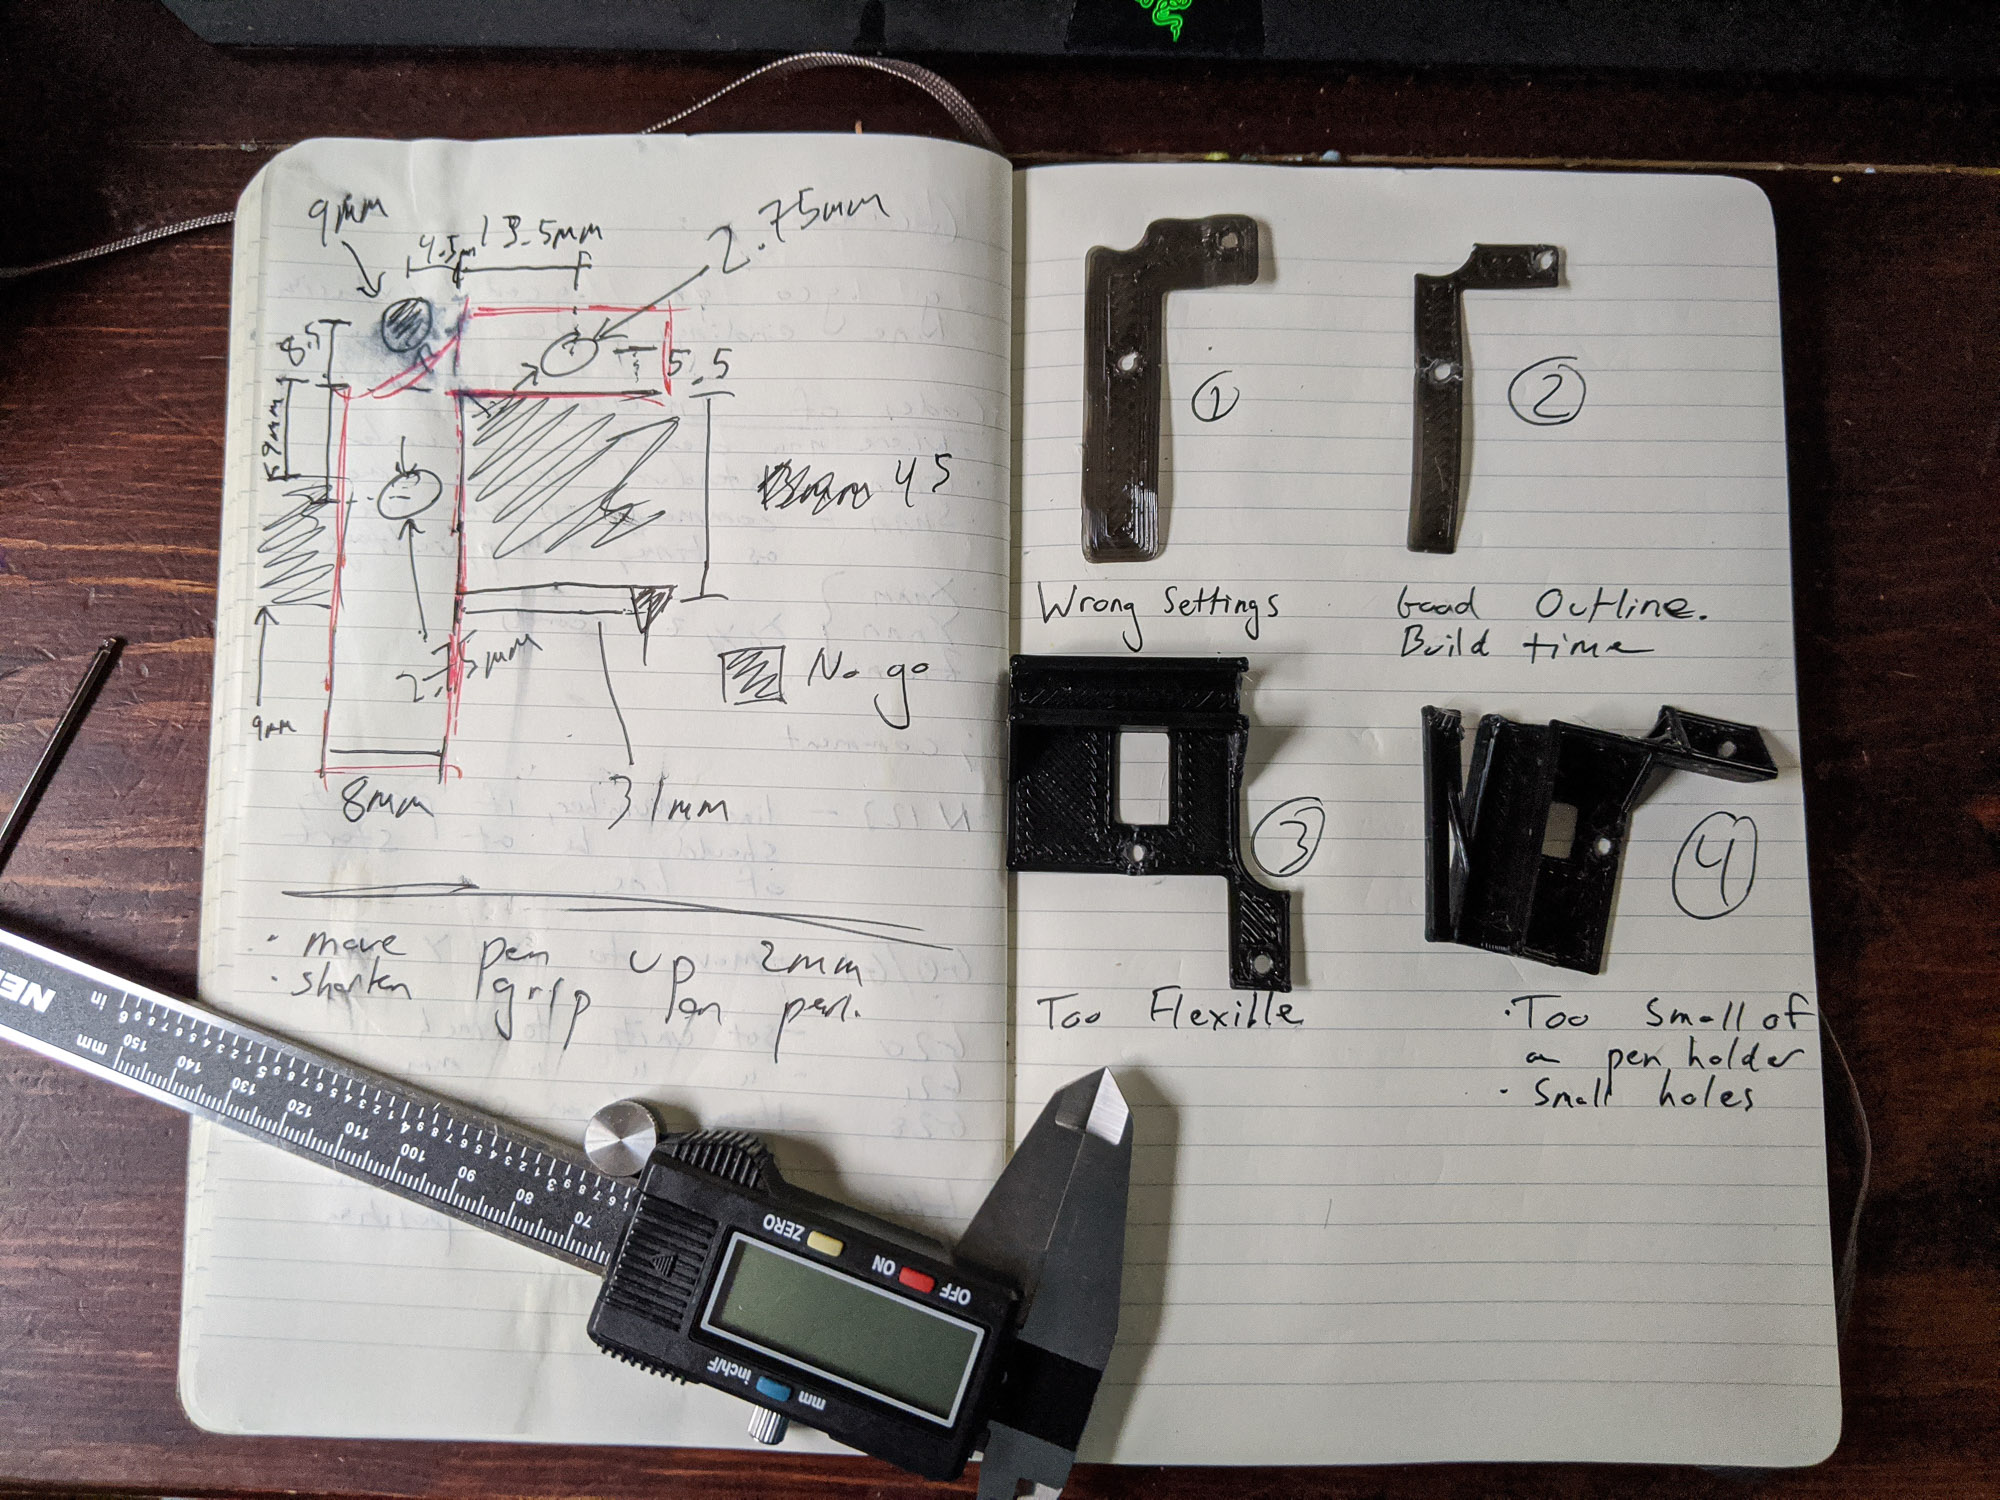 9mm
4.5m
13.5mm
2.75mm
8.5
5.5
9mm
45
2.75mm
No go
9mm
8mm
31mm
· move pen up 2mm
· shorten grip on pen.
1
2
Wrong Settings
Good Outline.
Build time
3
4
Too Flexible
· Too Small of
a pen holder
· Small holes
in
mm
150
140
130
120
110
100
90
80
70
ZERO
ON
OFF
inch/F
mm